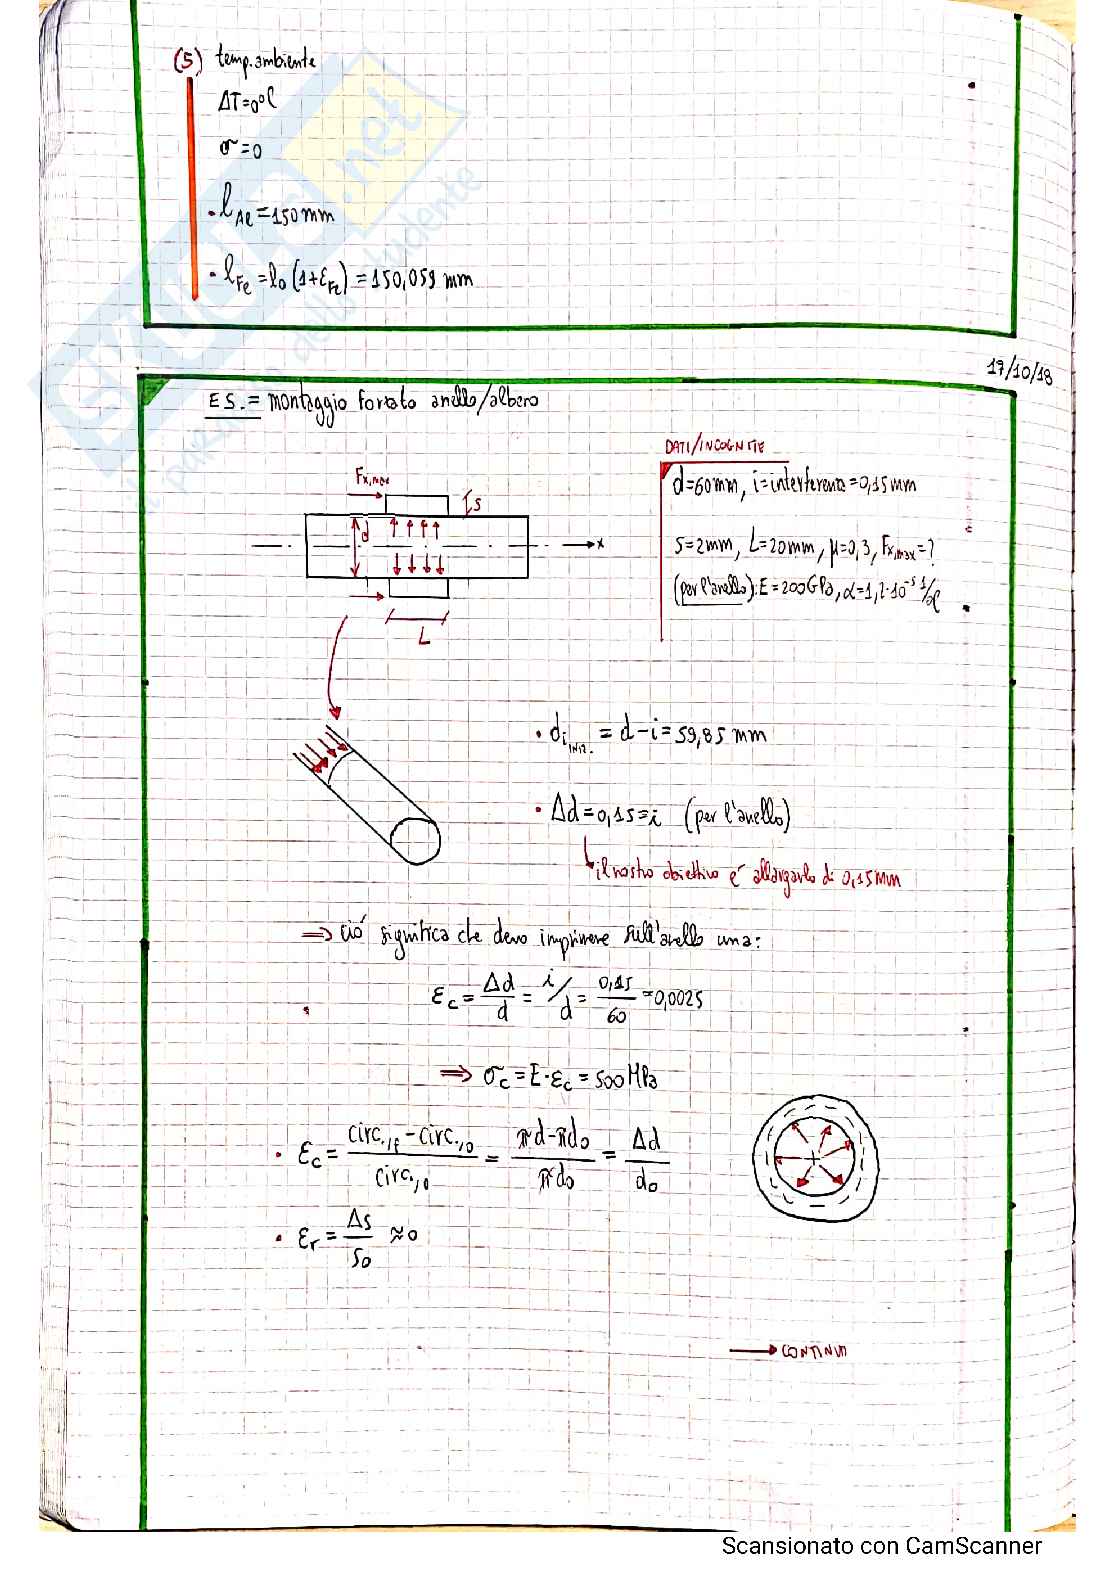 (5) temp. ambiente
ΔT=0°C
σ=0
• l_Al = 150 mm
• l_Fe = l_0 (1+ε_Fe) = 150,059 mm
SKUOLA.net
17/10/18
ES. = montaggio forzato anello/albero
DATI/INCOGNITE
d=60mm, i=interferenza=0,15mm
S=2mm, L=20mm, μ=0,3, Fx,max=?
(per l'anello): E=200GPa, α=1,2·10⁻⁵ 1/°C
Fx,max
S
d
x
L
• d_i INIZ. = d-i = 59,85 mm
• Δd=0,15=i (per l'anello)
il nostro obiettivo é allargarlo di 0,15mm
⇒ ció significa che devo imprimere sull'anello una:
ε_c = Δd/d = i/d = 0,15/60 = 0,0025
⇒ σ_c = E·ε_c = 500 MPa
• ε_c = (circ.,f - circ.,0)/circ.,0 = (πd-πd_0)/πd_0 = Δd/d_0
• ε_r = Δs/s_0 ≈ 0
→ CONTINUA
Scansionato con CamScanner